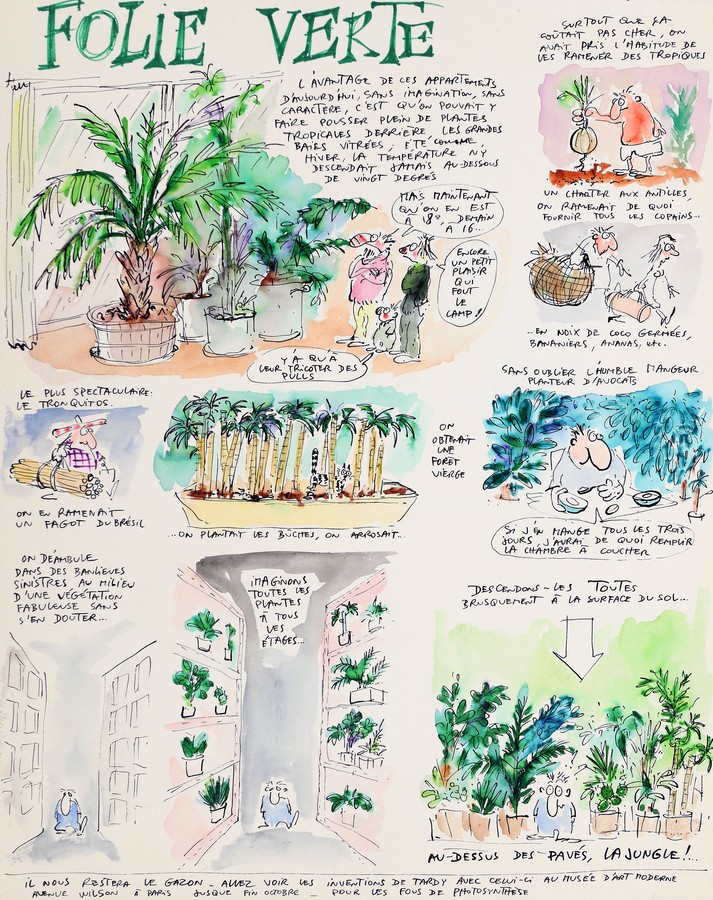 FOLIE VERTE
L'AVANTAGE DE CES APPARTEMENTS
D'AUJOURD'HUI, SANS IMAGINATION, SANS
CARACTÈRE, C'EST QU'ON POUVAIT Y
FAIRE POUSSER PLEIN DE PLANTES
TROPICALES DERRIÈRE LES GRANDES
BAIES VITRÉES; ÉTÉ COMME
HIVER, LA TEMPÉRATURE N'Y
DESCENDAIT JAMAIS AU-DESSOUS
DE VINGT DEGRÉS
MAIS MAINTENANT
QU'ON EN EST
À 18°, DEMAIN
À 16...
ENCORE
UN PETIT
PLAISIR
QUI
FOUT
LE
CAMP!
Y A QU'À
LEUR TRICOTER DES
PULLS
SURTOUT QUE ÇA
COÛTAIT PAS CHER, ON
AVAIT PRIS L'HABITUDE DE
LES RAMENER DES TROPIQUES
UN CHARTER AUX ANTILLES,
ON RAMENAIT DE QUOI
FOURNIR TOUS LES COPAINS...
...EN NOIX DE COCO GERMÉES,
BANANIERS, ANANAS, etc.
LE PLUS SPECTACULAIRE:
LE TRONQUITOS.
ON EN RAMENAIT
UN FAGOT DU BRÉSIL
...ON PLANTAIT LES BÛCHES, ON ARROSAIT...
ON
OBTENAIT
UNE
FORÊT
VIERGE
SANS OUBLIER L'HUMBLE MANGEUR
PLANTEUR D'AVOCATS
SI J'EN MANGE TOUS LES TROIS
JOURS, J'AURAI DE QUOI REMPLIR
LA CHAMBRE À COUCHER
ON DEAMBULE
DANS DES BANLIEUES
SINISTRES AU MILIEU
D'UNE VÉGÉTATION
FABULEUSE SANS
S'EN DOUTER...
IMAGINONS
TOUTES LES
PLANTES
À TOUS
LES
ÉTAGES...
DESCENDONS-LES TOUTES
BRUSQUEMENT À LA SURFACE DU SOL...
AU-DESSUS DES PAVÉS, LA JUNGLE!...
IL NOUS RESTERA LE GAZON - ALLEZ VOIR LES INVENTIONS DE TARDY AVEC CELUI-CI AU MUSÉE D'ART MODERNE
AVENUE WILSON À PARIS JUSQUE FIN OCTOBRE - POUR LES FOUS DE PHOTOSYNTHÈSE